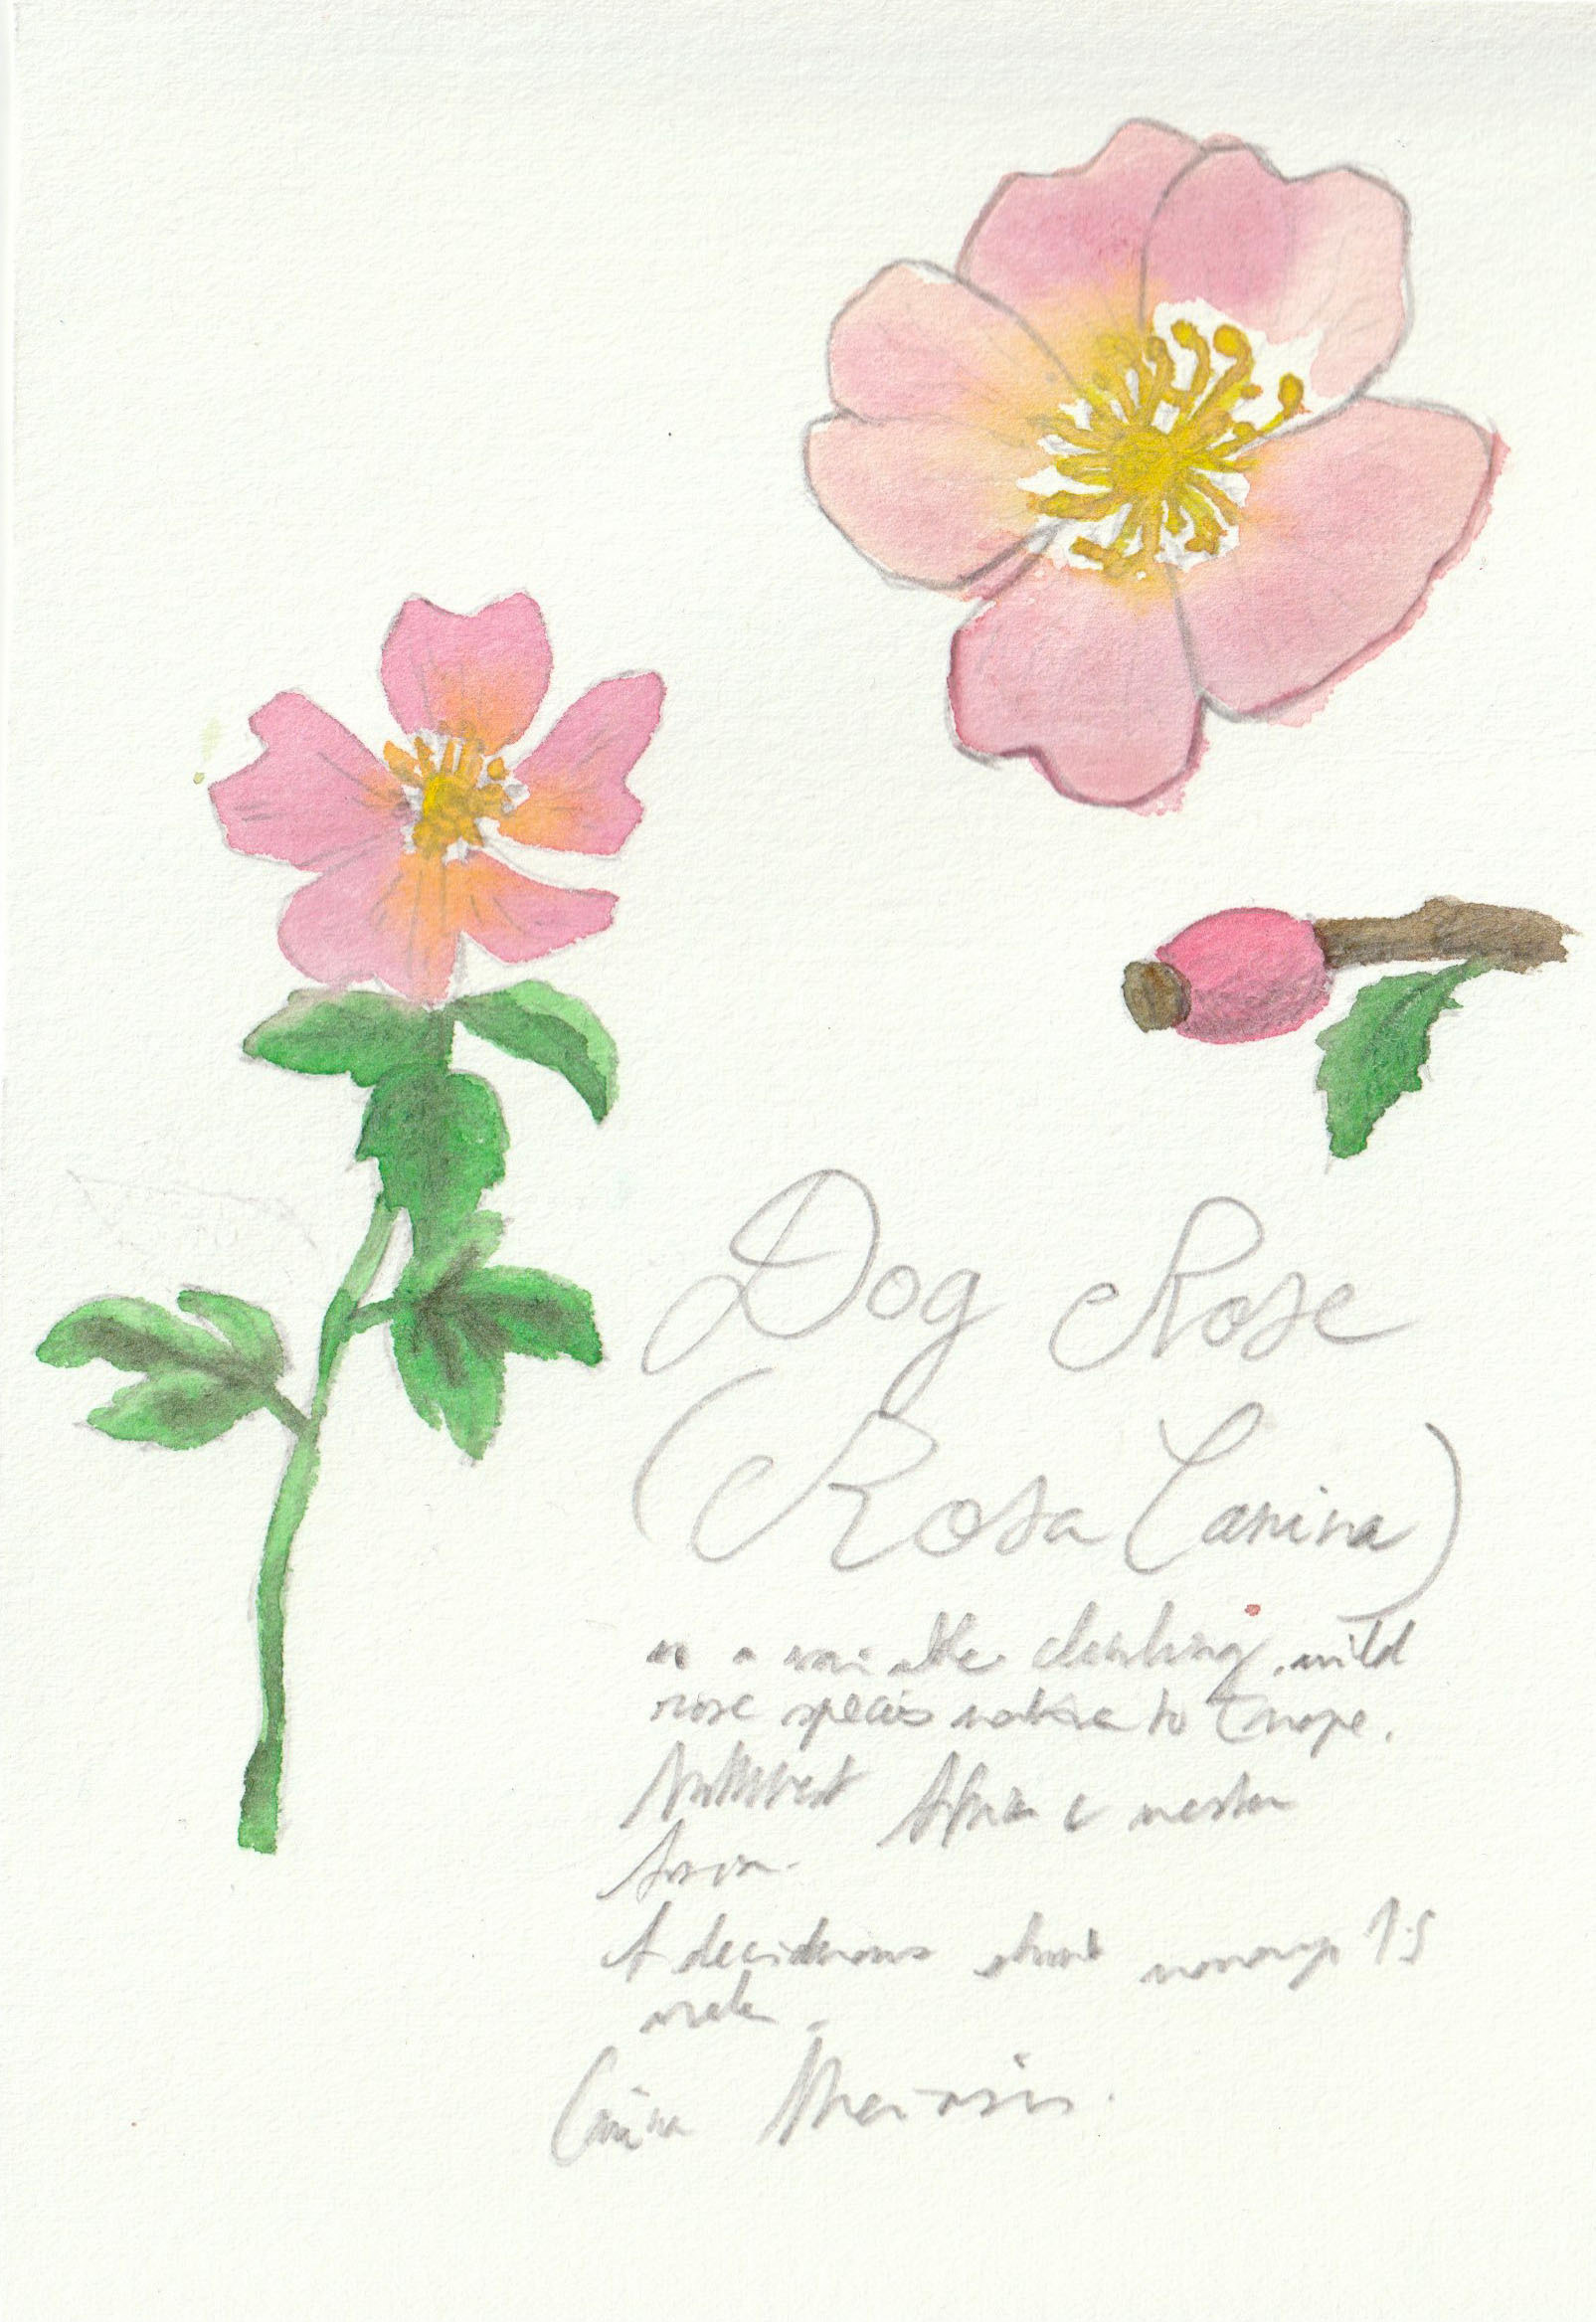 Dog Rose
(Rosa Canina)
is a variable climbing, wild
rose species native to Europe.
Northwest Africa & western
Asia.
A deciduous shrub 1.5
Canina